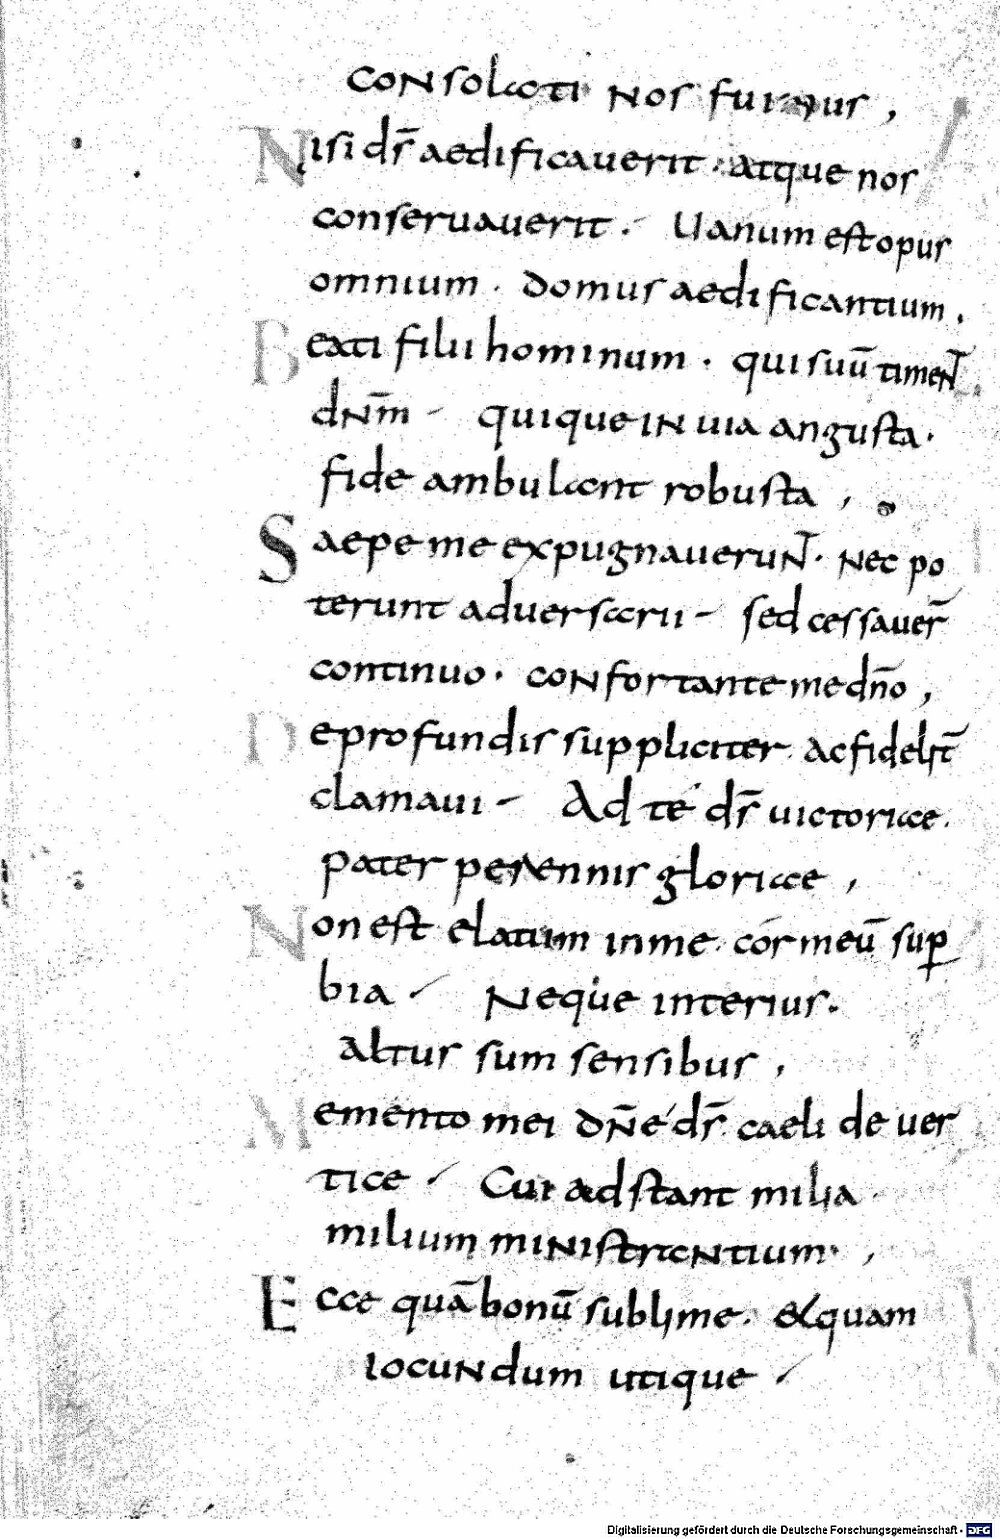 conSolati nos fuimus,
Nisi ds̄ aedificauerit · atque nos
conseruauerit · Uanum est opus
omnium · domus aedificantium,
Beati filii hominum · qui suū timeNT̄
dNm̄ - quique iN uia angusta ·
fide ambulant robusta,
Saepe me expugnaueruNT · Nec po
terunt aduersarii - sed cessauer̄
continuo · coNfortante me dn̄o,
De profundis suppliciter · ac fidelit̄
clamaui - Ad te ds̄ uictoriae ·
pater perennis gloriae,
Non est elatum in me · cor meū sup̲
bia · Neque interius ·
altus sum sensibus,
Memento mei dN̄e ds̄ caeli de uer
tice · Cui adstant milia ·
milium miNistraNtium · ,
Ecce quā bonū sublime · & quam
iocuNdum utique
Digitalisierung gefördert durch die Deutsche Forschungsgemeinschaft - DFG